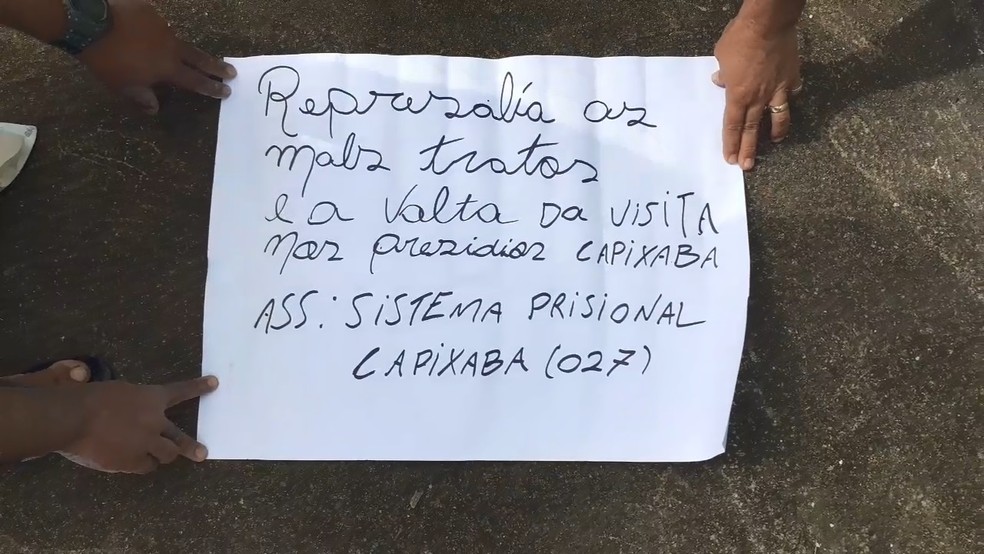 Represalía as
mals tratos
e a Valta DA VISITA
nos presidios CAPIXABA
ASS: SISTEMA PRISIONAL
CAPIXABA (027)